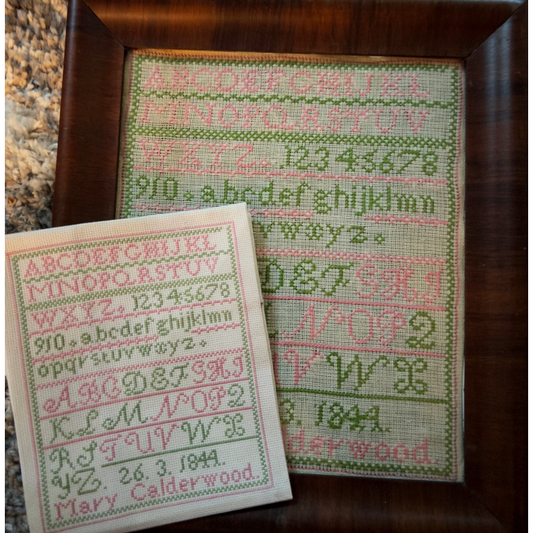 ABCDEFGHIJKL
MNOPQRSTUV
WXYZ. 12345678
910.a.bcdefghijklmn
vwxyz.
DEFGHI
NOP2
VWX
3. 1844.
lderwood.
ABCDEFGHIJKL
MNOPQRSTUV
WXYZ. 12345678
910.a.bcdefghijklmn
opqrstuvwxyz.
ABCDEFGHI
KLMNOP2
RSTUVWX
YZ. 26. 3. 1844.
Mary Calderwood.